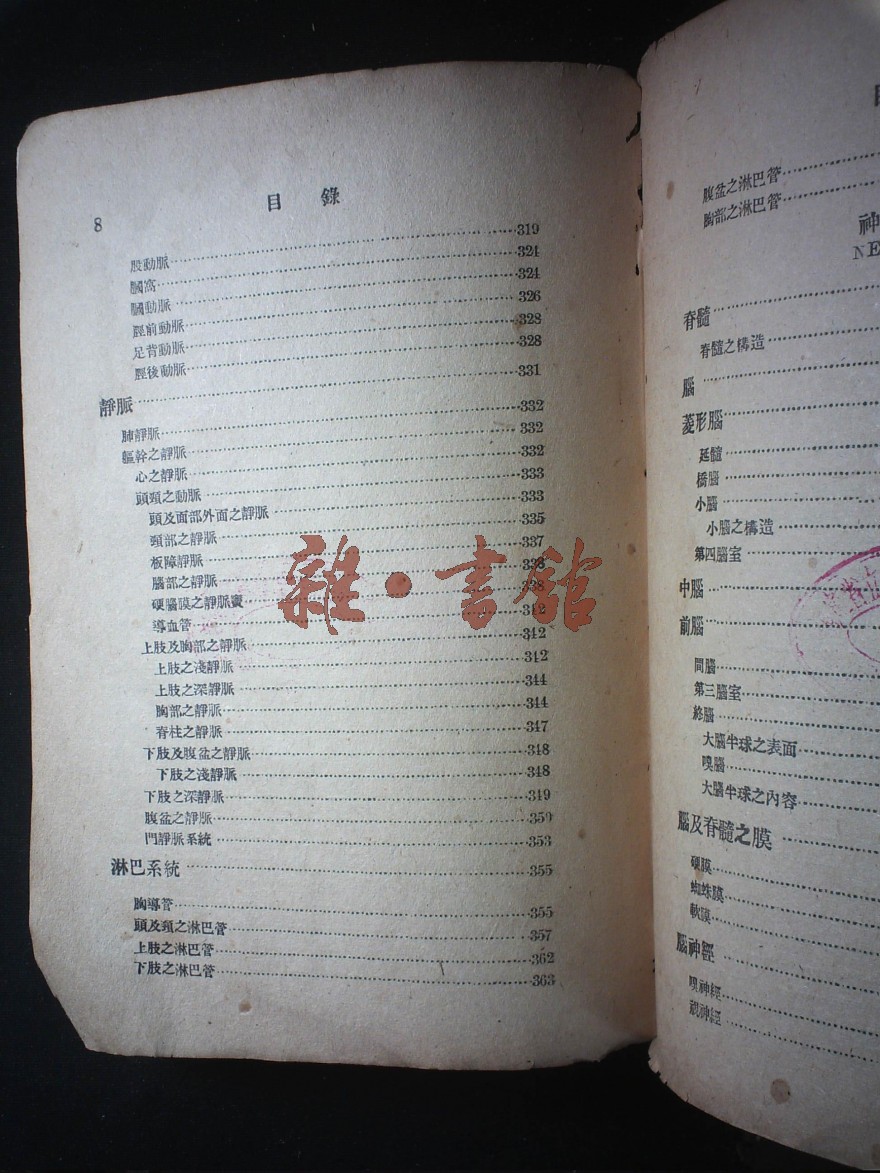 8
目錄
股動脈 319
膕窩 324
膕動脈 324
脛前動脈 326
足背動脈 328
脛後動脈 328
靜脈 331
肺靜脈 332
軀幹之靜脈 332
心之靜脈 332
頭頸之動脈 333
頭及面部外面之靜脈 333
頸部之靜脈 335
板障靜脈 337
腦部之靜脈 338
硬腦膜之靜脈竇 338
導血管 342
上肢及胸部之靜脈 342
上肢之淺靜脈 342
上肢之深靜脈 344
胸部之靜脈 344
脊柱之靜脈 347
下肢及腹盆之靜脈 348
下肢之淺靜脈 348
下肢之深靜脈 349
腹盆之靜脈 350
門靜脈系統 353
淋巴系統 355
胸導管 355
頭及頸之淋巴管 357
上肢之淋巴管 362
下肢之淋巴管 363
雜·書館
腹盆之淋巴管
胸部之淋巴管
神
NE
脊髓
脊髓之構造
腦
菱形腦
延髓
橋腦
小腦
小腦之構造
第四腦室
中腦
前腦
間腦
第三腦室
終腦
大腦半球之表面
嗅腦
大腦半球之內容
腦及脊髓之膜
硬膜
蜘蛛膜
軟膜
腦神經
嗅神經
視神經